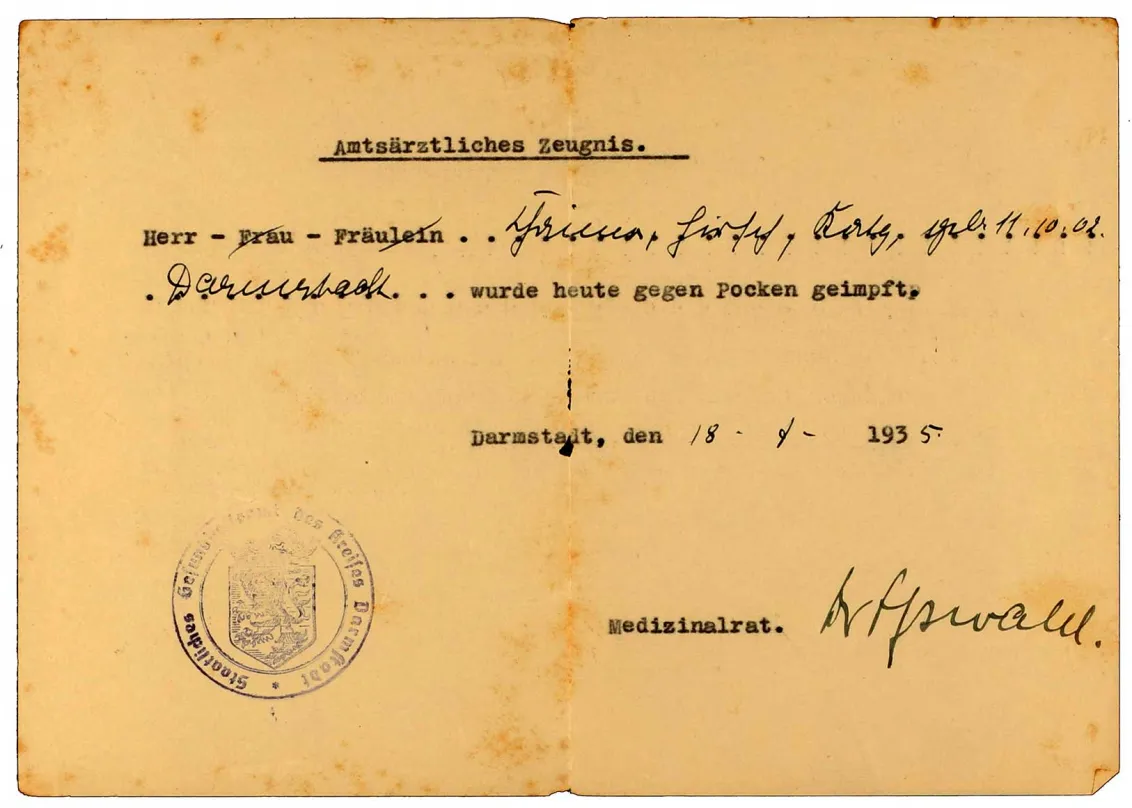 Amtsärztliches Zeugnis.
Herr - Frau - Fräulein . . Hirsch, Katz, geb. 11.10.02.
. Darmstadt . . . wurde heute gegen Pocken geimpft.
Darmstadt, den 18 - - 1935.
Medizinalrat. Dr
Staatliches Gesundheitsamt des Kreises Darmstadt *